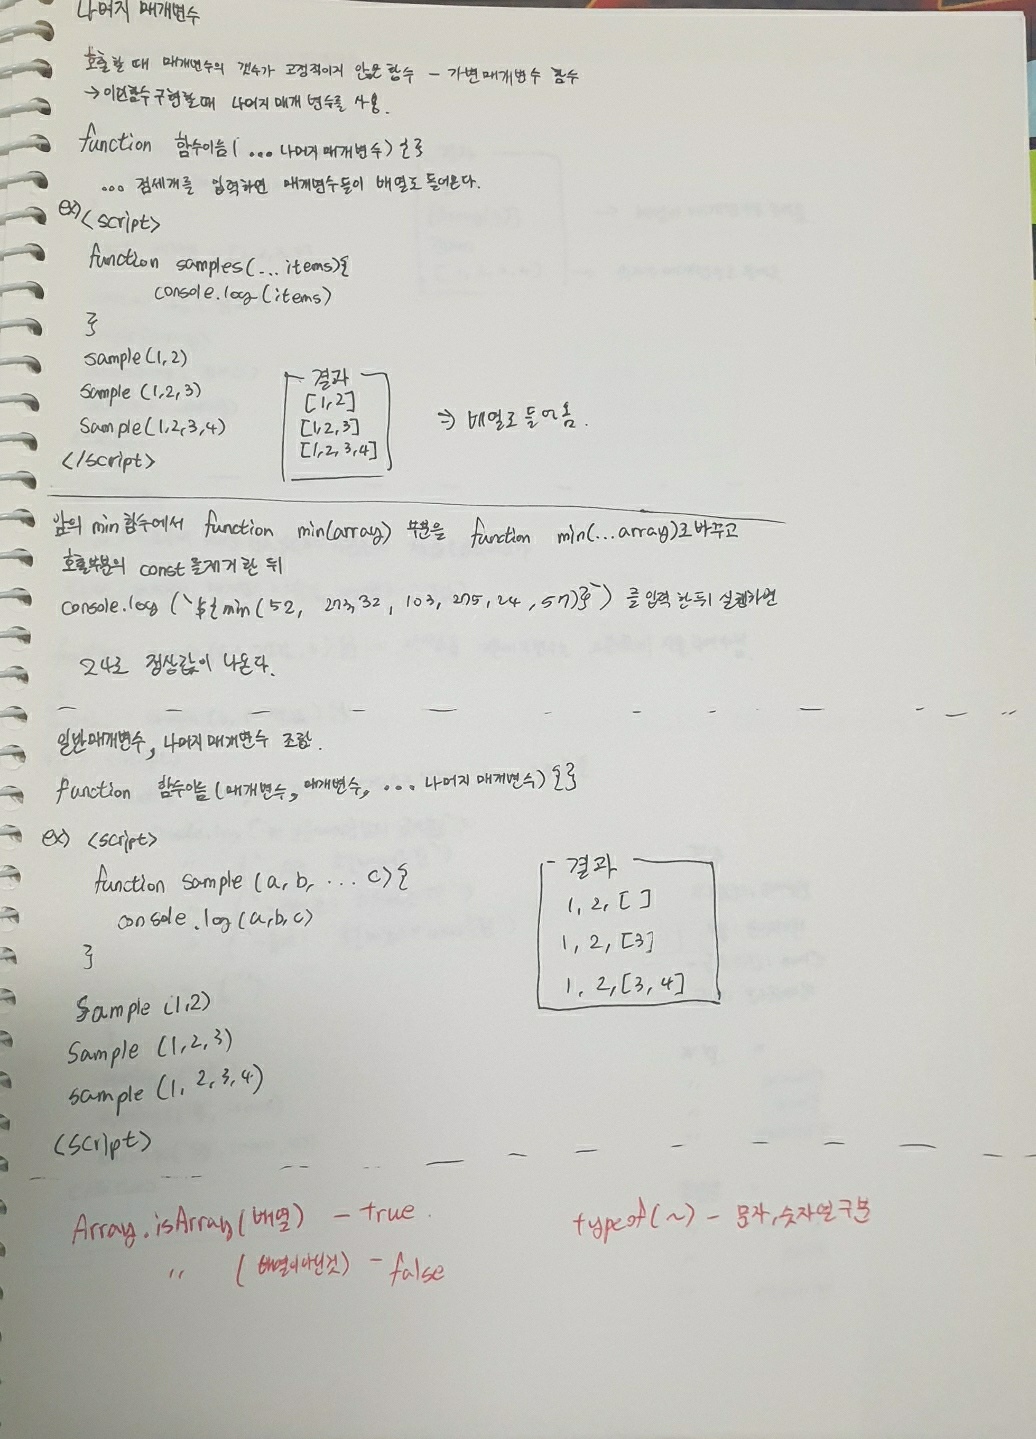 나머지 매개변수
호출할 때 매개변수의 갯수가 고정적이지 않은 함수 - 가변 매개변수 함수
→ 이런함수 구현할때 나머지 매개 변수를 사용.
function 함수이름(...나머지 매개변수){}
... 점세개를 입력하면 매개변수들이 배열로 들어온다.
ex) <script>
function samples(...items){
console.log(items)
}
sample(1,2)
sample (1,2,3)
sample(1,2,3,4)
</script>
결과
[1,2]
[1,2,3]
[1,2,3,4]
⇒ 배열로 들어옴.
앞의 min 함수에서 function min(array) 부분을 function min(...array)로 바꾸고
호출부분의 const 를 제거한 뒤
console.log (`${min(52, 273,32, 103, 275, 24, 57)}`) 를 입력 한 뒤 실행하면
24로 정상값이 나온다.
일반매개변수, 나머지 매개변수 조합.
function 함수이름(매개변수, 매개변수, ...나머지 매개변수){}
ex) <script>
function sample (a, b, ... c){
console.log(a,b,c)
}
sample (1,2)
sample (1,2,3)
sample (1, 2,3,4)
<script>
결과
1, 2, [ ]
1, 2, [3]
1, 2, [3, 4]
Array.isArray(배열) - true.
〃 (배열이아닌것) - false
typeof(~) - 문자,숫자열 구분